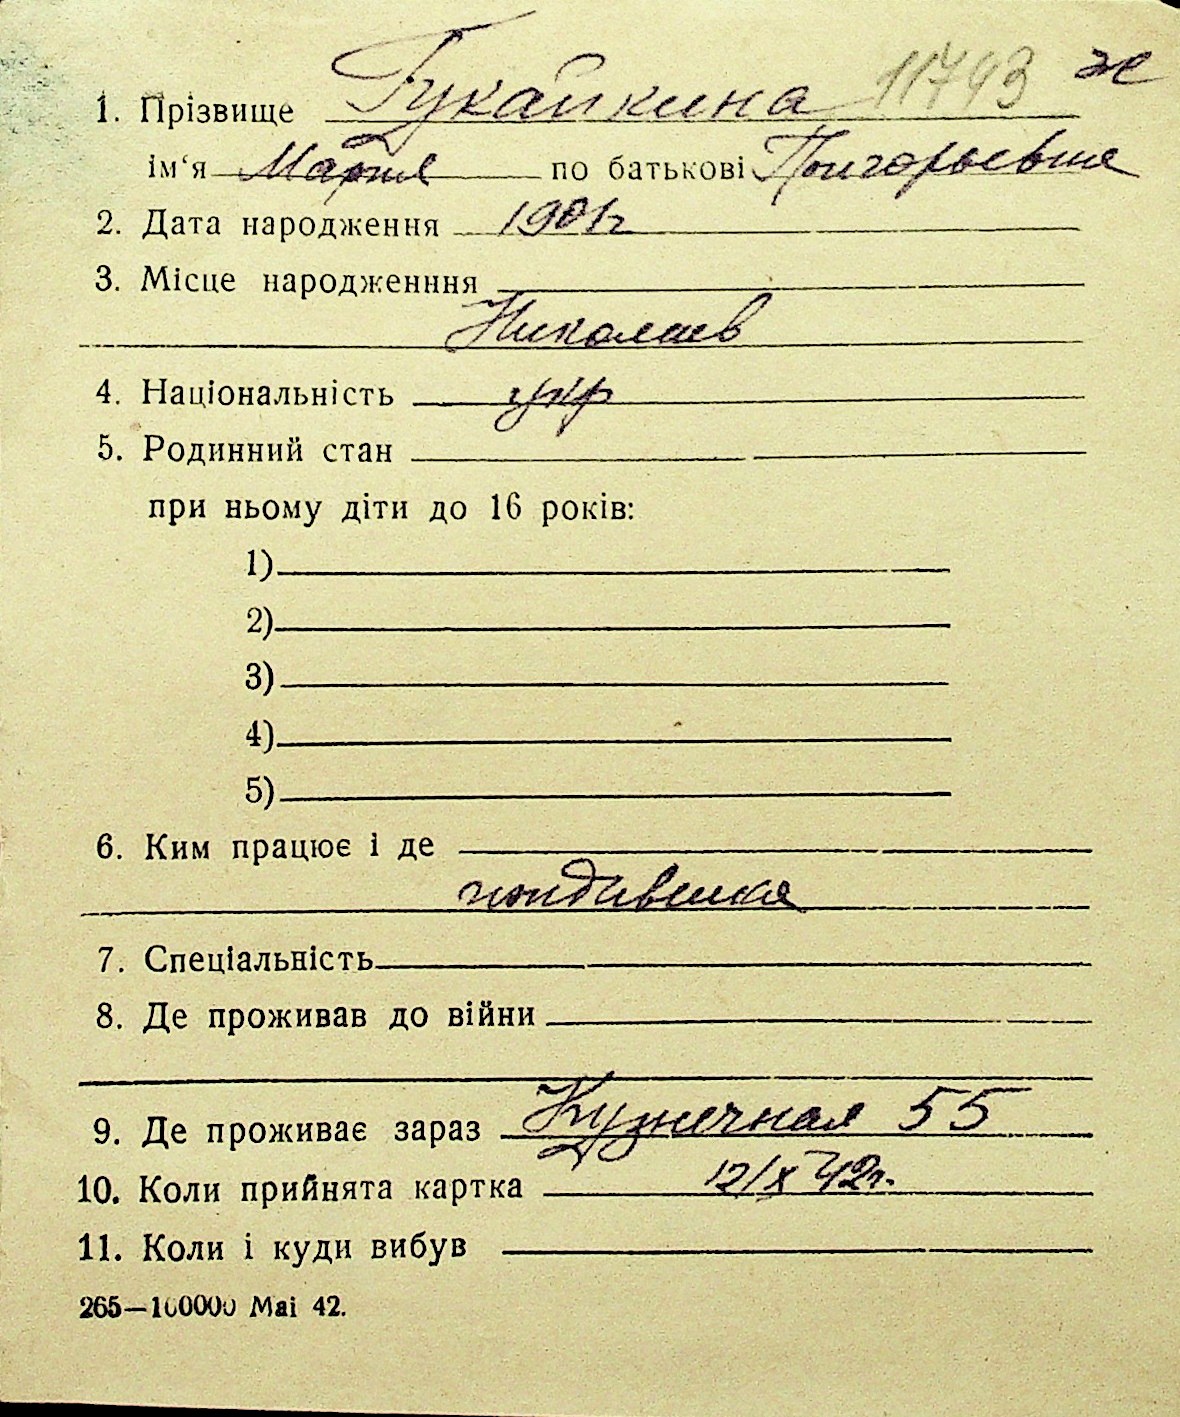 11743 ж
1. Прізвище Гукайкина
ім‘я Мария по батькові Григорьевна
2. Дата народження 1901г
3. Місце народженння
Николаев
4. Національність укр
5. Родинний стан
при ньому діти до 16 років:
1)
2)
3)
4)
5)
6. Ким працює і де
иждивенка
7. Спеціальність
8. Де проживав до війни
9. Де проживає зараз Кузнечная 55
10. Коли прийнята картка 12/X 42г.
11. Коли і куди вибув
265—100000 Mai 42.